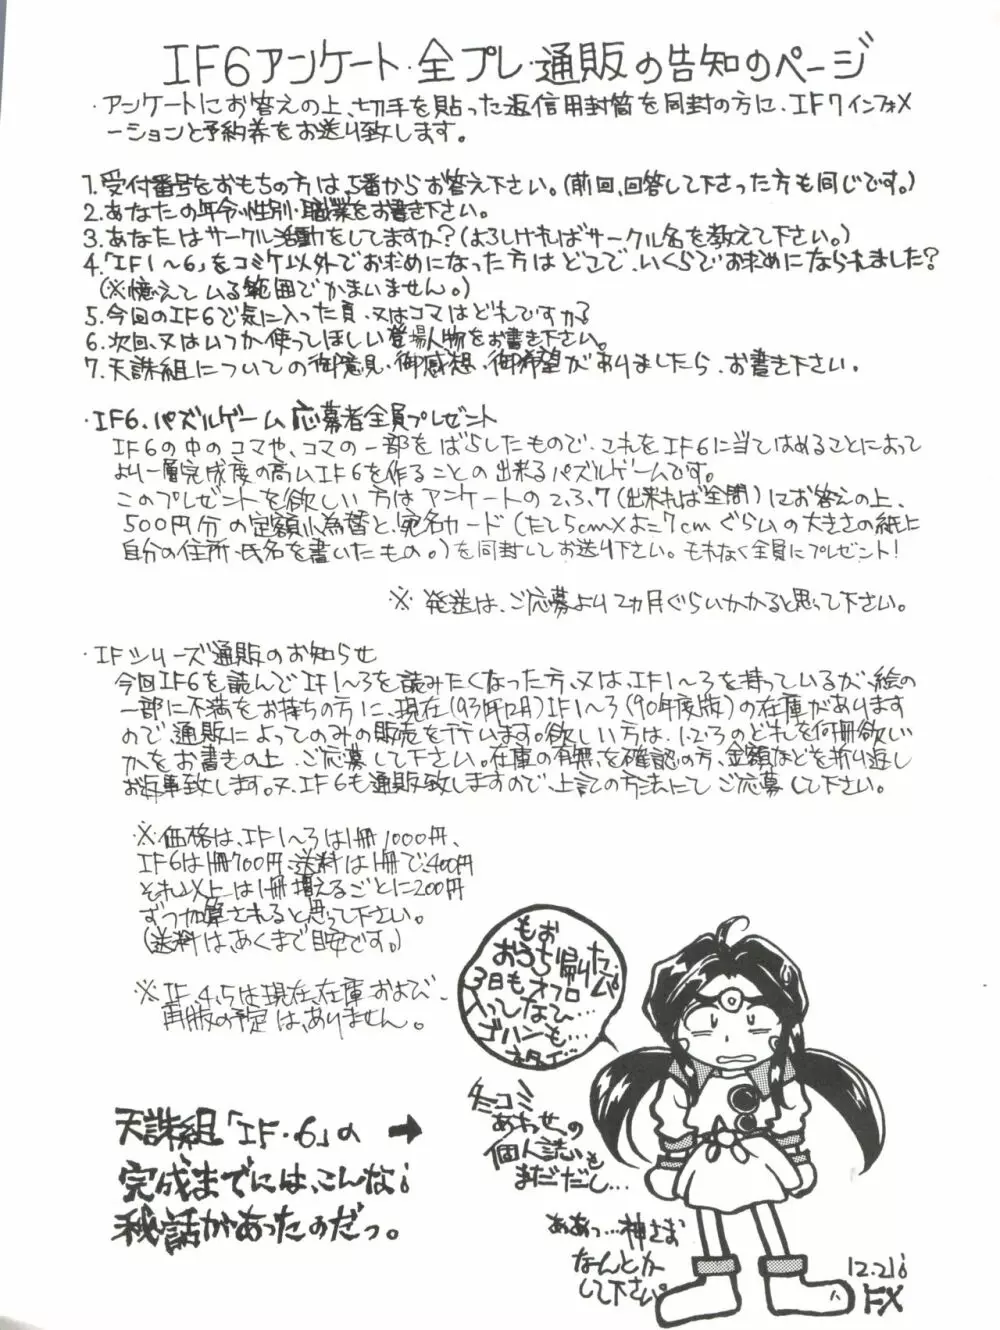 IF6アンケート・全プレ・通販の告知のページ
・アンケートにお答えの上、切手を貼った返信用封筒を同封の方に、IF7インフォメ
ーションと予約券をお送り致します。
1.受付番号をおもちの方は、5番からお答え下さい。(前回、回答して下さった方も同じです。)
2.あなたの年令・性別・職業をお書き下さい。
3.あなたはサークル活動をしてますか?(よろしければサークル名を教えて下さい。)
4.「IF1〜6」をコミケ以外でお求めになった方はどこで、いくらでお求めになられました?
(※憶えている範囲でかまいません。)
5.今回のIF6で気に入った頁、又はコマはどれですか?
6.次回、又はいつか使ってほしい登場人物をお書き下さい。
7.天誅組についての御意見・御感想・御希望がありましたら、お書き下さい。
・IF6、パズルゲーム応募者全員プレゼント
IF6の中のコマや、コマの一部をばらしたもので、これをIF6に当てはめることによって
より一層完成度の高いIF6を作ることの出来るパズルゲームです。
このプレゼントを欲しい方はアンケートの2、3、7(出来れば全問)にお答えの上、
500円分の定額小為替と、宛名カード(たて5cm×よこ7cmぐらいの大きさの紙に
自分の住所・氏名を書いたもの。)を同封してお送り下さい。もれなく全員にプレゼント!
※発送は、ご応募より2ヵ月ぐらいかかると思って下さい。
・IFシリーズ通販のお知らせ
今回IF6を読んでIF1〜3を読みたくなった方、又は、IF1〜3を持っているが、絵の
一部に不満をお持ちの方に、現在(93年12月)IF1〜3(90年度版)の在庫があります
ので、通販によってのみの販売を行います。欲しい方は、1・2・3のどれを何冊欲しい
かをお書きの上、ご応募して下さい。在庫の有無を確認の方、金額などを折り返し
お返事致します。又、IF6も通販致しますので、上記の方法にてご応募して下さい。
※価格は、IF1〜3は1冊1000円、
IF6は1冊700円、送料は1冊で、400円
それ以上は1冊増えるごとに200円
ずつ加算されると思って下さい。
(送料は、あくまで目安です。)
※IF、4、5は現在、在庫および、
再版の予定は、ありません。
もお
おうち帰りたい。
3日もオフロ
入ってないし…
ゴハンも…
冬コミ
あわせの
個人誌も
まだだし…
天誅組「IF・6」の →
完成までには、こんな
秘話があったのだっ。
ああっ…神さま
なんとか
して下さい。
12.21
FX